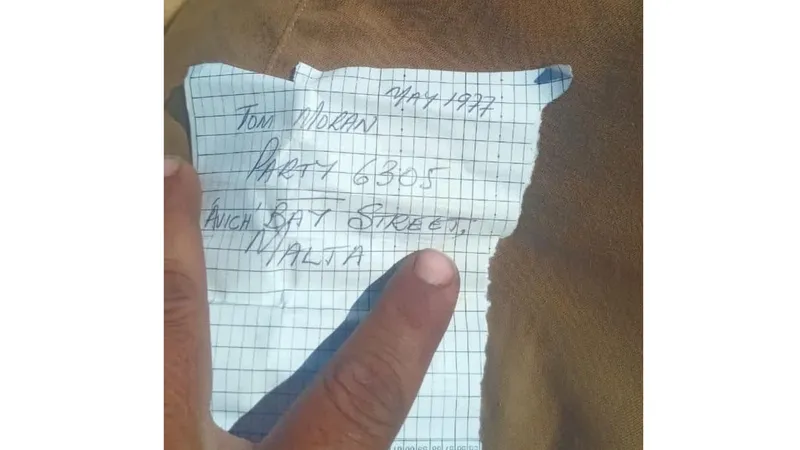 MAY 1977
TOM MORAN
PARTY 6305
'AVICH' BAY STREET.
MALTA